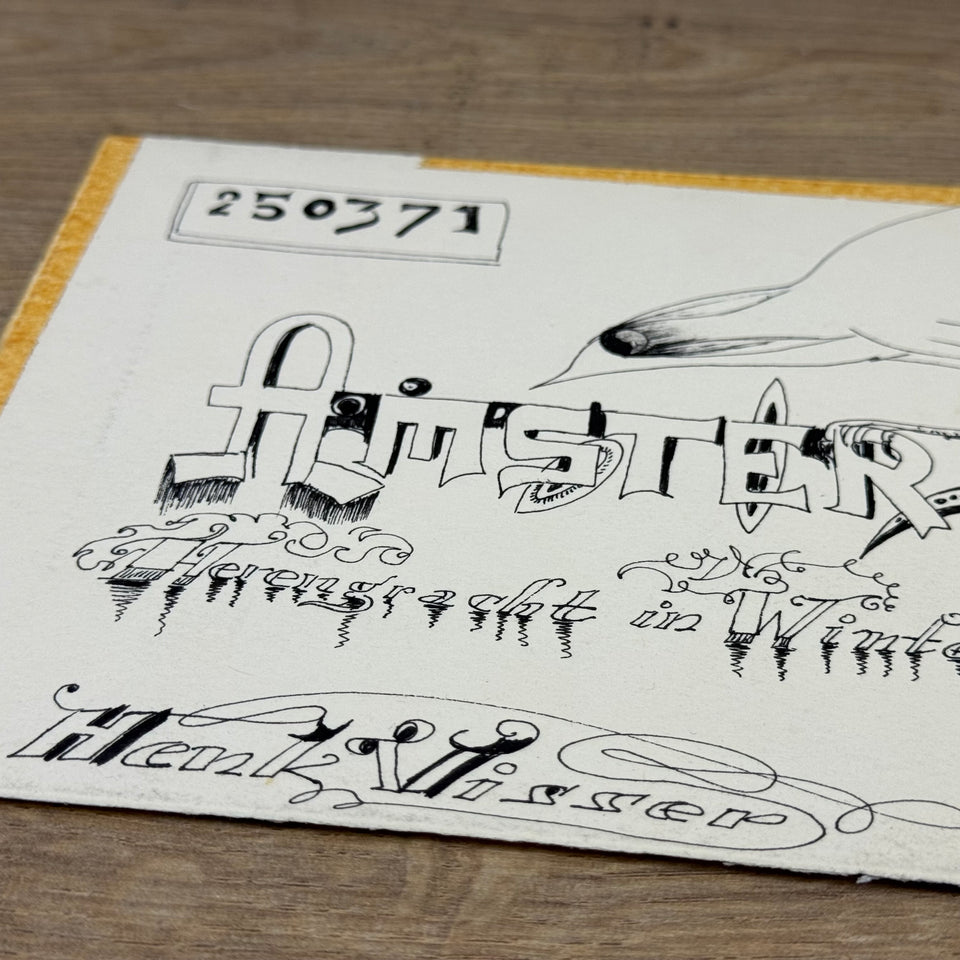 250371
AMSTER
Herengracht in Winte
Henk Visser